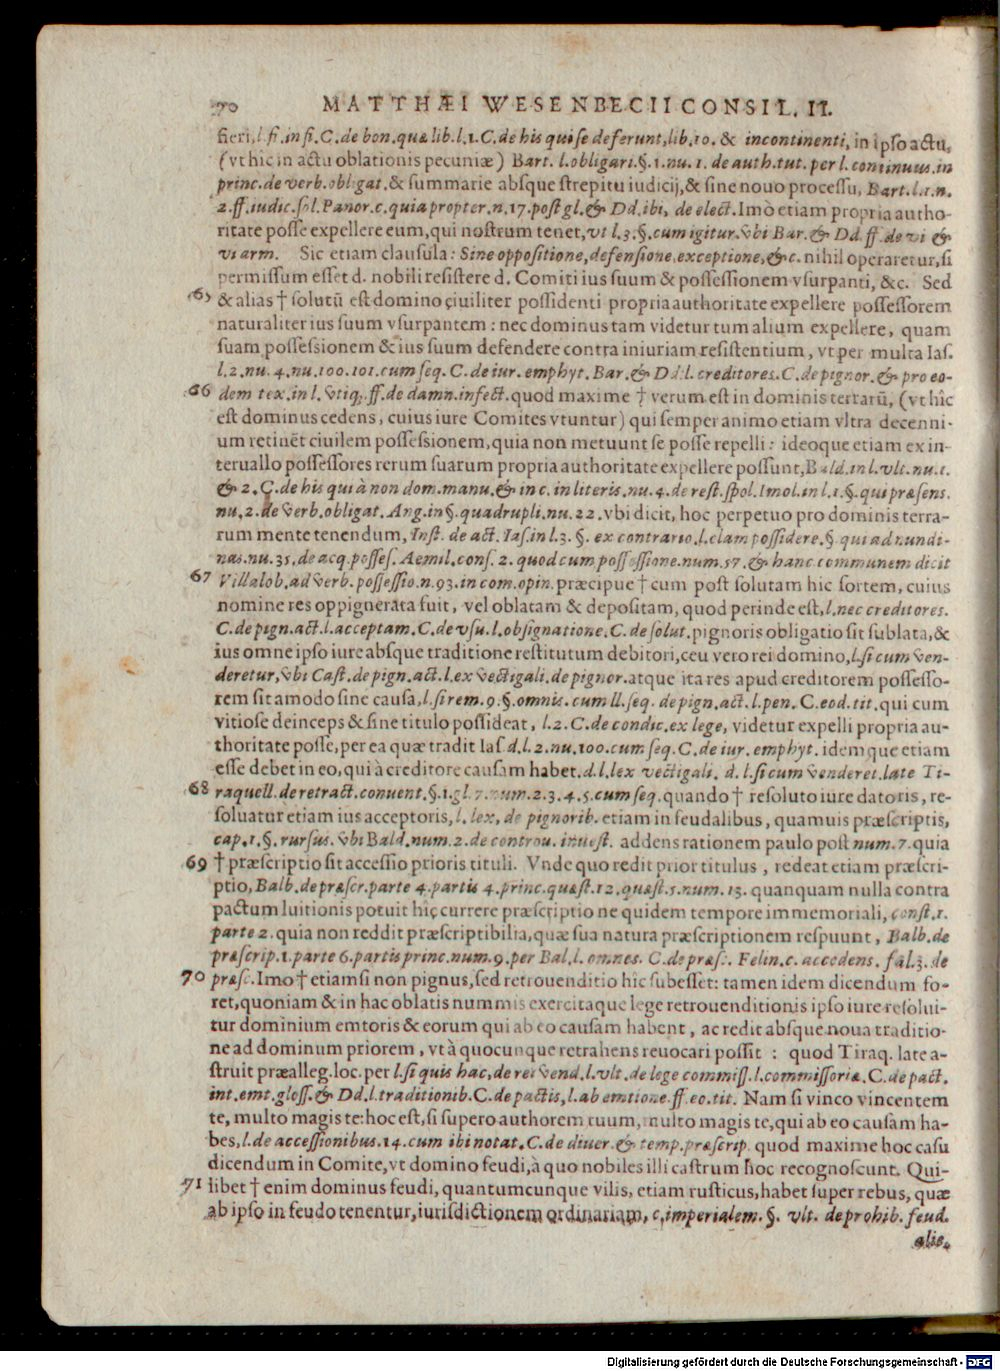 70 MATTHÆI WESENBECII CONSIL. II.
fieri, l. fi. in fi. C. de bon. quæ lib. l. 1. C. de his qui se deferunt, lib. 10. & incontinenti, in ipso actu,
(vt hic in actu oblationis pecuniæ) Bart. l. obligari. §. 1. nu. 1. de auth. tut. per l. continuus. in
princ. de verb. obligat. & summarie absque strepitu iudicij, & sine nouo processu, Bart. l. 1. n.
2. ff. iudic. sol. Panor. c. quia propter. n. 17. post gl. & Dd. ibi, de elect. Imò etiam propria autho-
ritate posse expellere eum, qui nostrum tenet, vt l. 3. §. cum igitur. vbi Bar. & Dd. ff. de vi &
vi arm. Sic etiam clausula: Sine oppositione, defensione, exceptione, &c. nihil operaretur, si
permissum esset d. nobili resistere d. Comiti ius suum & possessionem vsurpanti, &c. Sed
65 & alias † solutū est domino ciuiliter possidenti propria authoritate expellere possessorem
naturaliter ius suum vsurpantem: nec dominus tam videtur tum alium expellere, quam
suam possessionem & ius suum defendere contra iniuriam resistentium, vt per multa Ias.
l. 2. nu. 4. nu. 100. 101. cum seq. C. de iur. emphyt. Bar. & Dd. l. creditores. C. de pignor. & pro eo-
66 dem tex. in l. vtiq; ff. de damn. infect. quod maxime † verum est in dominis terrarū, (vt hîc
est dominus cedens, cuius iure Comites vtuntur) qui semper animo etiam vltra decenni-
um retinēt ciuilem possessionem, quia non metuunt se posse repelli: ideoque etiam ex in-
teruallo possessores rerum suarum propria authoritate expellere possunt, Bald. in l. vlt. nu. 1.
& 2. C. de his qui à non dom. manu. & in c. in literis. nu. 4. de rest. spol. Imol. in l. 1. §. qui præsens.
nu. 2. de verb. obligat. Ang. in §. quadrupli. nu. 22. vbi dicit, hoc perpetuo pro dominis terra-
rum mente tenendum, Inst. de act. Ias. in l. 3. §. ex contrario. l. clam possidere. §. qui ad nundi-
nas. nu. 35. de acq. posses. Aemil. cons. 2. quod cum possessione. num. 57. & hanc communem dicit
67 Villalob. ad verb. possessio. n. 93. in com. opin. præcipue † cum post solutam hic sortem, cuius
nomine res oppignerata fuit, vel oblatam & depositam, quod perinde est, l. nec creditores.
C. de pign. act. l. acceptam. C. de vsu. l. obsignatione. C. de solut. pignoris obligatio sit sublata, &
ius omne ipso iure absque traditione restitutum debitori, ceu vero rei domino, l. si cum ven-
deretur, vbi Cast. de pign. act. l. ex vectigali. de pignor. atque ita res apud creditorem possesso-
rem sit amodo sine causa, l. si rem. 9. §. omnis. cum ll. seq. de pign. act. l. pen. C. eod. tit. qui cum
vitiose deinceps & sine titulo possideat, l. 2. C. de condic. ex lege, videtur expelli propria au-
thoritate posse, per ea quæ tradit Ias d. l. 2. nu. 100. cum seq. C. de iur. emphyt. idemque etiam
esse debet in eo, qui à creditore causam habet. d. l. lex vectigali. d. l. si cum venderet. late Ti-
68 raquell. de retract. conuent. §. 1. gl. 7. num. 2. 3. 4. 5. cum seq. quando † resoluto iure datoris, re-
soluatur etiam ius acceptoris, l. lex, de pignorib. etiam in feudalibus, quamuis præscriptis,
cap. 1. §. rursus. vbi Bald. num. 2. de controu. inuest. addens rationem paulo post num. 7. quia
69 † præscriptio sit accessio prioris tituli. Vnde quo redit prior titulus, redeat etiam præscri-
ptio, Balb. de præscr. parte 4. partis 4. princ. quæst. 12. quæst. 5. num. 13. quanquam nulla contra
pactum luitionis potuit hîc currere præscriptio ne quidem tempore immemoriali, const. 1.
parte 2. quia non reddit præscriptibilia, quæ sua natura præscriptionem respuunt, Balb. de
præscrip. 1. parte 6. partis princ. num. 9. per Bal. l. omnes. C. de præs. Felin. c. accedens. fal. 3. de
70 præsc. Imo † etiamsi non pignus, sed retrouenditio hic subesset: tamen idem dicendum fo-
ret, quoniam & in hac oblatis nummis exercitaque lege retrouenditionis ipso iure resolui-
tur dominium emtoris & eorum qui ab eo causam habent, ac redit absque noua traditio-
ne ad dominum priorem, vt à quocunque retrahens reuocari possit: quod Tiraq. late a-
struit præalleg. loc. per l. si quis hac, de rei vend. l. vlt. de lege commiss. l. commissoriæ. C. de pact.
int. emt. gloss. & Dd. l. traditionib. C. de pactis, l. ab emtione. ff. eo. tit. Nam si vinco vincentem
te, multo magis te: hoc est, si supero authorem tuum, multo magis te, qui ab eo causam ha-
bes, l. de accessionibus. 14. cum ibi notat. C. de diuer. & temp. præscrip. quod maxime hoc casu
dicendum in Comite, vt domino feudi, à quo nobiles illi castrum hoc recognoscunt. Qui-
71 libet † enim dominus feudi, quantumcunque vilis, etiam rusticus, habet super rebus, quæ
ab ipso in feudo tenentur, iurisdictionem ordinariam, c. imperialem. §. vlt. de prohib. feud.
alie.
Digitalisierung gefördert durch die Deutsche Forschungsgemeinschaft - DFG